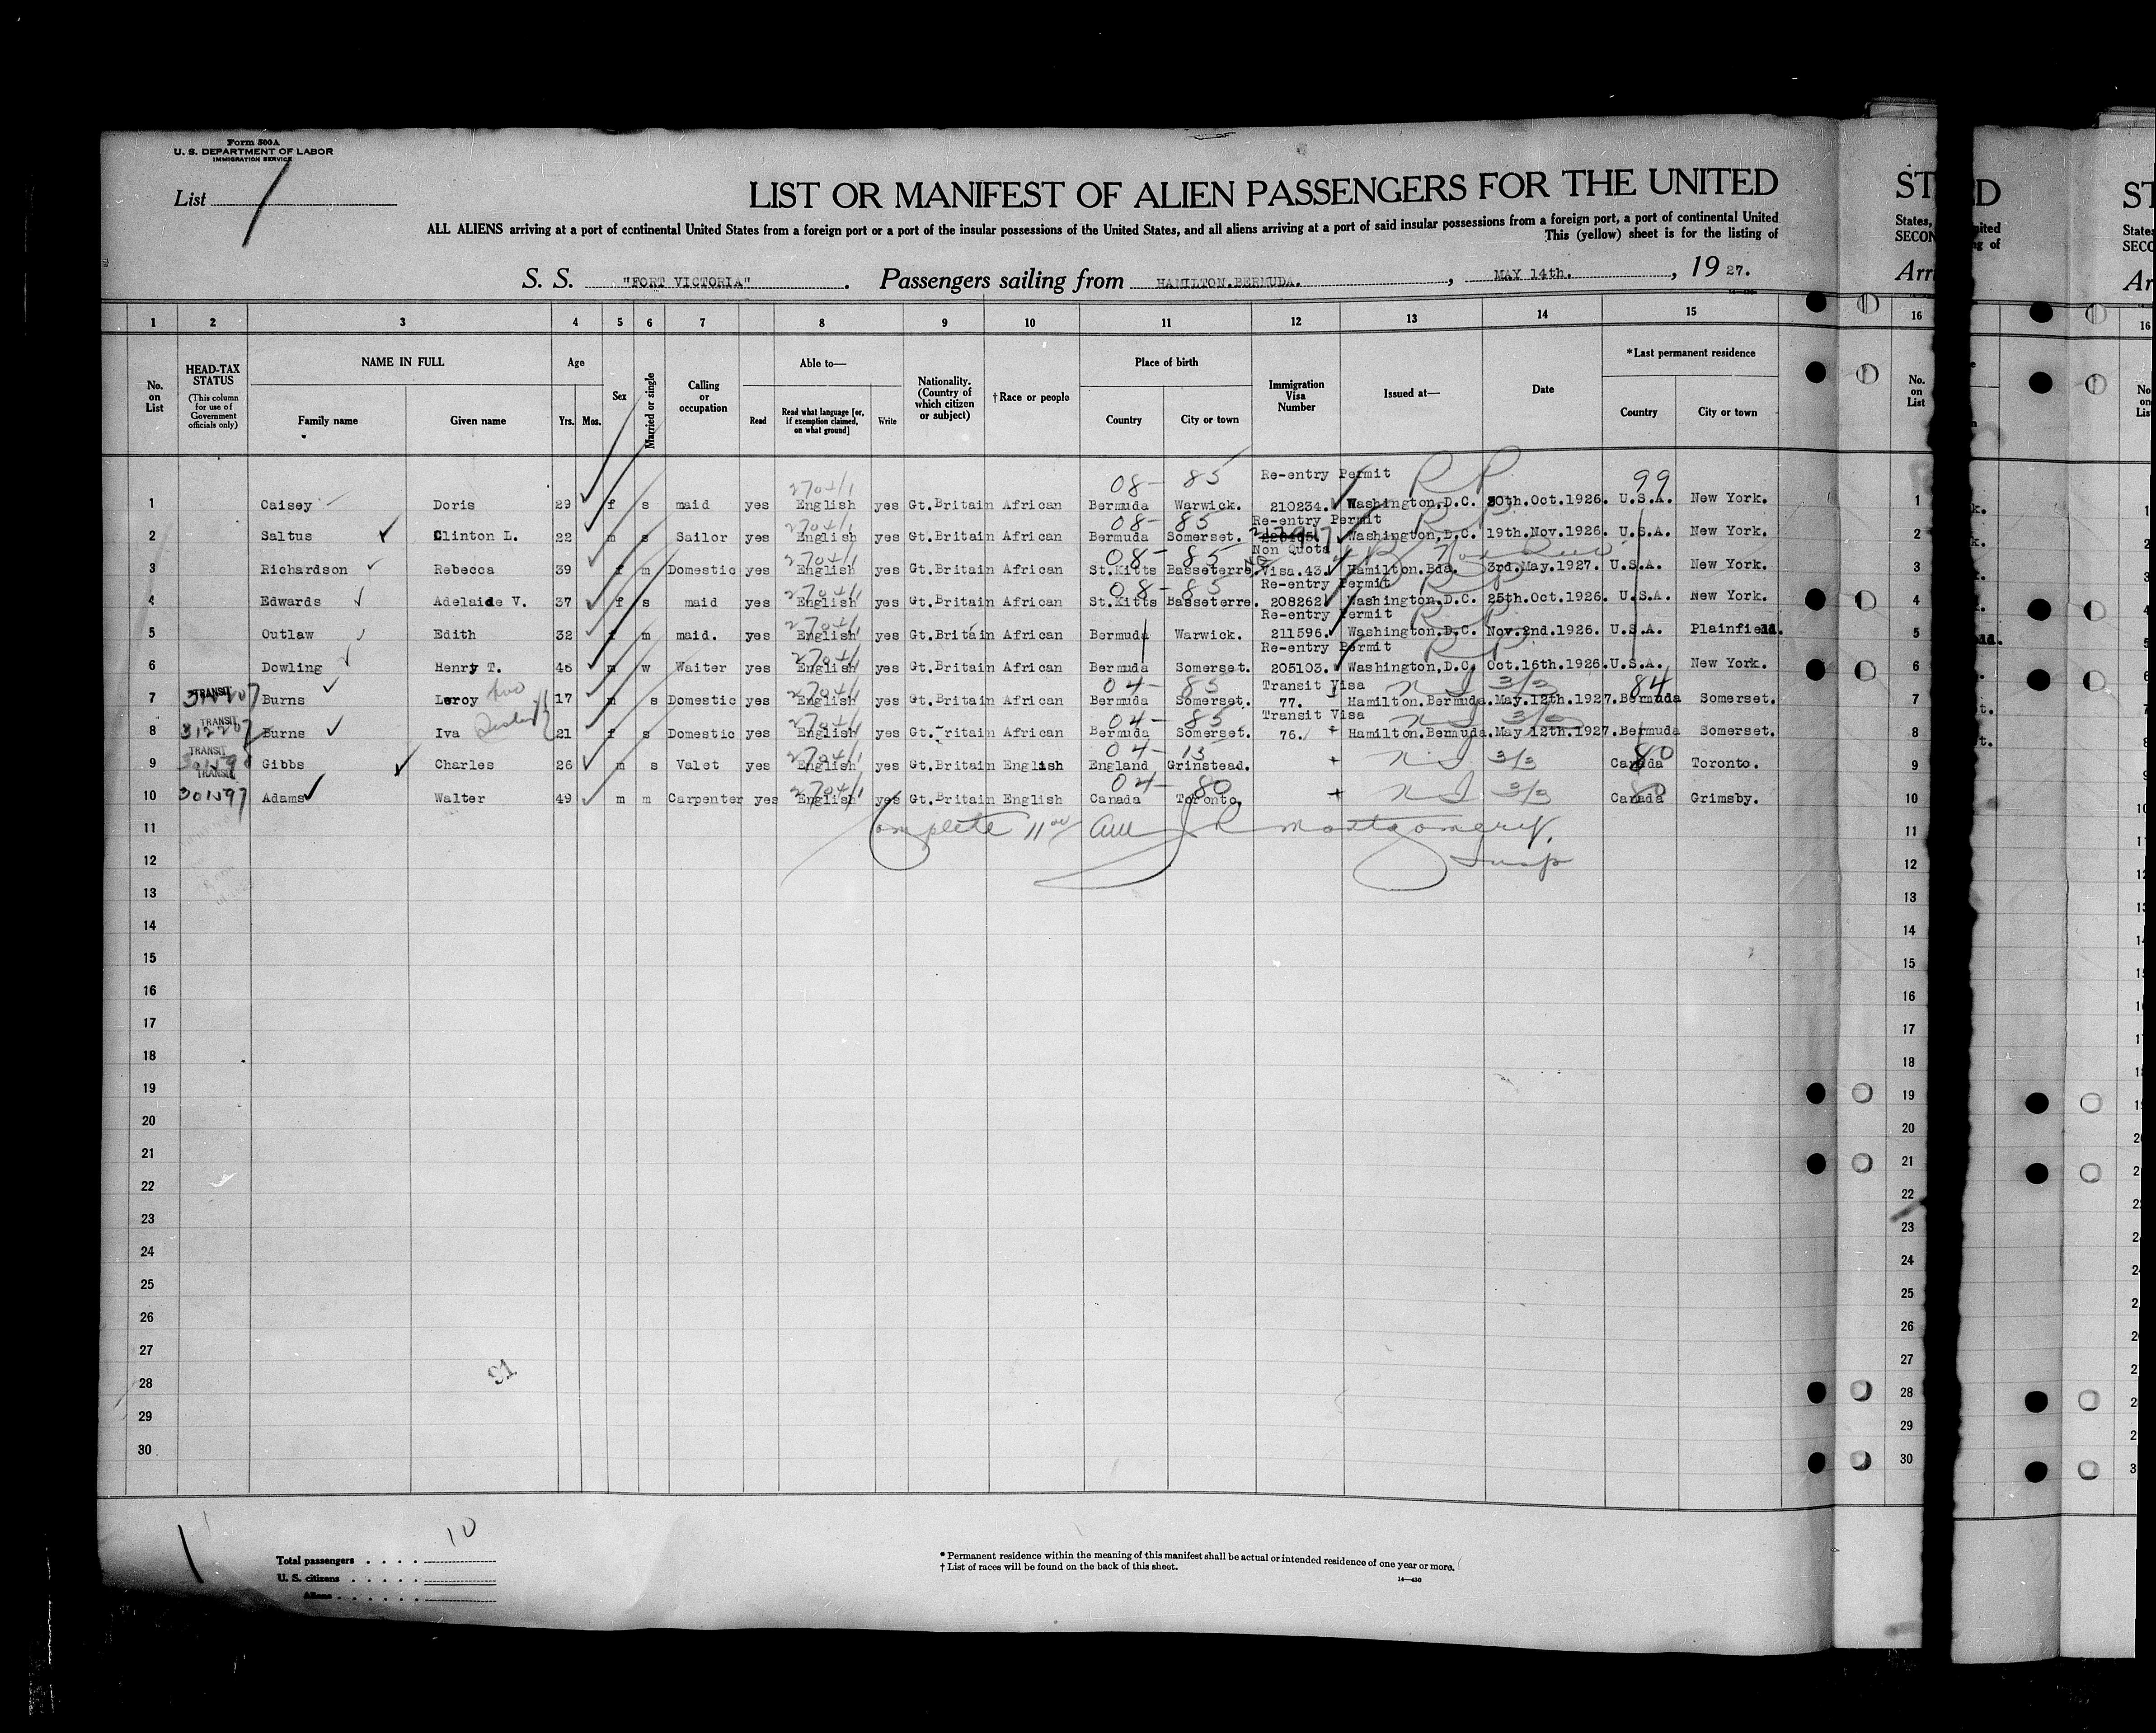 Form 500A
U. S. DEPARTMENT OF LABOR
IMMIGRATION SERVICE
List 1
LIST OR MANIFEST OF ALIEN PASSENGERS FOR THE UNITED
ALL ALIENS arriving at a port of continental United States from a foreign port or a port of the insular possessions of the United States, and all aliens arriving at a port of said insular possessions from a foreign port, a port of continental United
This (yellow) sheet is for the listing of
S. S. "FORT VICTORIA" . Passengers sailing from HAMILTON.BERMUDA. , MAY 14th. , 19 27.
1 2 3 4 5 6 7 8 9 10 11 12 13 14 15
No. on List
HEAD-TAX STATUS (This column for use of Government officials only)
NAME IN FULL Family name Given name
Age Yrs. Mos.
Sex
Married or single
Calling or occupation
Able to— Read Read what language [or, if exemption claimed, on what ground] Write
Nationality. (Country of which citizen or subject)
†Race or people
Place of birth Country City or town
Immigration Visa Number
Issued at—
Date
*Last permanent residence Country City or town
27041 08- 85 Re-entry Permit RP 99
1 Caisey Doris 29 f s maid yes English yes Gt.Britain African Bermuda Warwick. 210234. Washington,D.C. 30th.Oct.1926. U.S.A. New York.
27041 08- 85 Re-entry Permit RP
2 Saltus Clinton L. 22 m s Sailor yes English yes Gt.Britain African Bermuda Somerset. Washington,D.C. 19th.Nov.1926. U.S.A. New York.
27041 08- 85 Non Quota
3 Richardson Rebecca 39 f m Domestic yes English yes Gt.Britain African St.Kitts Basseterre. Visa.43. Hamilton.Bda. 3rd.May.1927. U.S.A. New York.
27041 08- 85 Re-entry Permit RP
4 Edwards Adelaide V. 37 f s maid yes English yes Gt.Britain African St.Kitts Basseterre. 208262 Washington,D.C. 25th.Oct.1926. U.S.A. New York.
27041 Re-entry Permit RP
5 Outlaw Edith 32 f m maid. yes English yes Gt.Britain African Bermuda Warwick. 211596. Washington,D.C. Nov.2nd.1926. U.S.A. Plainfield.
27041 Re-entry Permit RP
6 Dowling Henry T. 46 m w Waiter yes English yes Gt.Britain African Bermuda Somerset. 205103. Washington,D.C. Oct.16th.1926. U.S.A. New York.
TRANSIT 27041 04- 85 Transit Visa 3/3 84
7 Burns Leroy 17 m s Domestic yes English yes Gt.Britain African Bermuda Somerset. 77. Hamilton.Bermuda.May.12th.1927.Bermuda Somerset.
TRANSIT 27041 04- 85 Transit Visa 3/3
8 312207 Burns Iva 21 f s Domestic yes English yes Gt. ritain African Bermuda Somerset. 76. Hamilton.Bermuda.May 12th.1927.Bermuda Somerset.
TRANSIT 27041 04- 13 3/3 80
9 Gibbs Charles 26 m s Valet yes English yes Gt.Britain English England Grinstead. Canada Toronto.
TRANSIT 27041 04- 80 3/3 80
10 301597 Adams Walter 49 m m Carpenter yes English yes Gt.Britain English Canada Toronto. Canada Grimsby.
11 Complete 11 00 AM J R Montgomery.
12 Insp
13
14
15
16
17
18
19
20
21
22
23
24
25
26
27
28 91
29
30
Total passengers . . . . 10
U. S. citizens . . . . .
Aliens . . . . . .
* Permanent residence within the meaning of this manifest shall be actual or intended residence of one year or more.
† List of races will be found on the back of this sheet.
14—430
ST
States,
SECON
Arr
16
No. on List
1
2
3
4
5
6
7
8
9
10
11
12
13
14
15
16
17
18
19
20
21
22
23
24
25
26
27
28
29
30